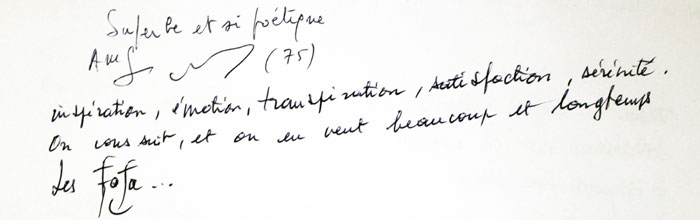 Superbe et si poétique
(75)
inspiration, émotion, transpiration, satisfaction, sérénité.
On vous suit, et on en veut beaucoup et longtemps
Les Fofa...